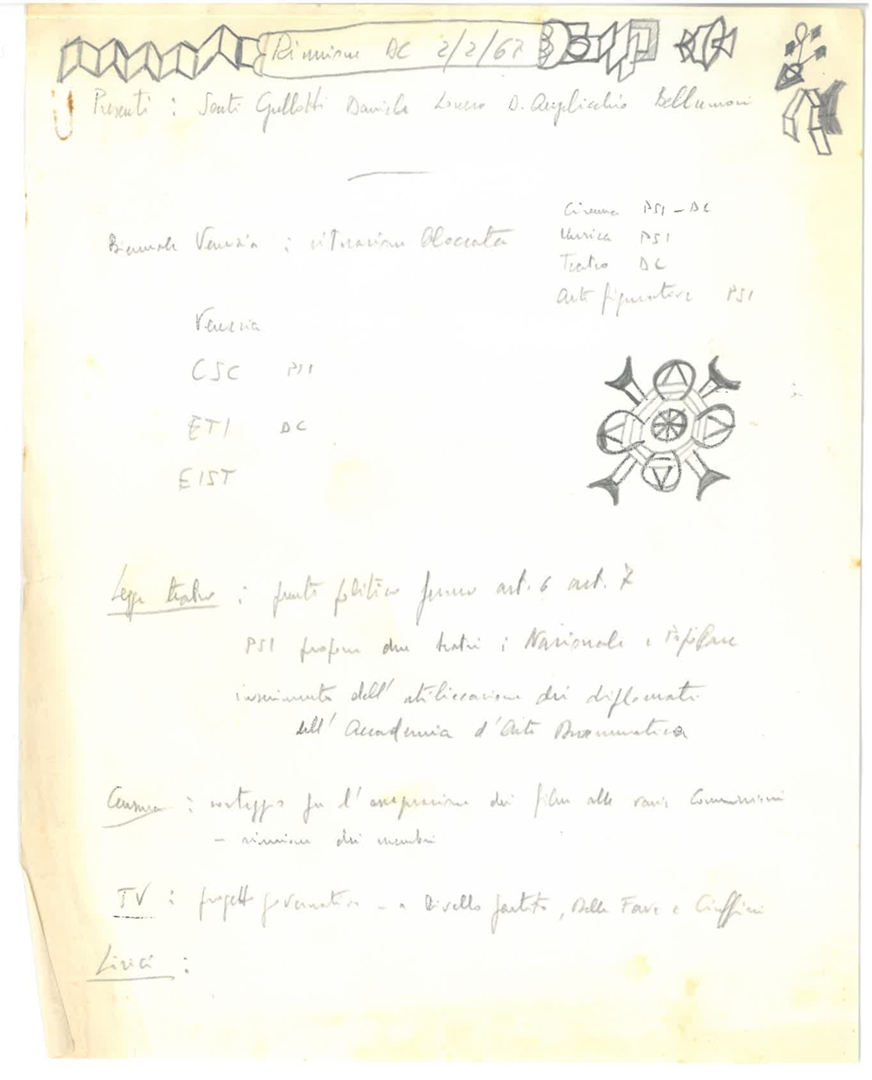 Riunione DC 2/2/67
Presenti : Sarti Gullotti Daniele D. Amplicchio Bellumori
Biennale Venezia : situazione bloccata
Cinema PSI – DC
Musica PSI
Teatro DC
Arti figurative PSI
Venezia
CSC PSI
ETI DC
EIST
Legge teatro : punto politico fermo art. 6 art. 7
PSI propone due teatri : Nazionale e Popolare
inserimento dell' utilizzazione dei diplomati
dell' Accademia d'Arte Drammatica
Censura : sorteggio per l'assegnazione dei film alle varie Commissioni
– riunione dei membri
TV : progetto governativo – a livello partito, Delle Fave e Ciuffini
Lirici :